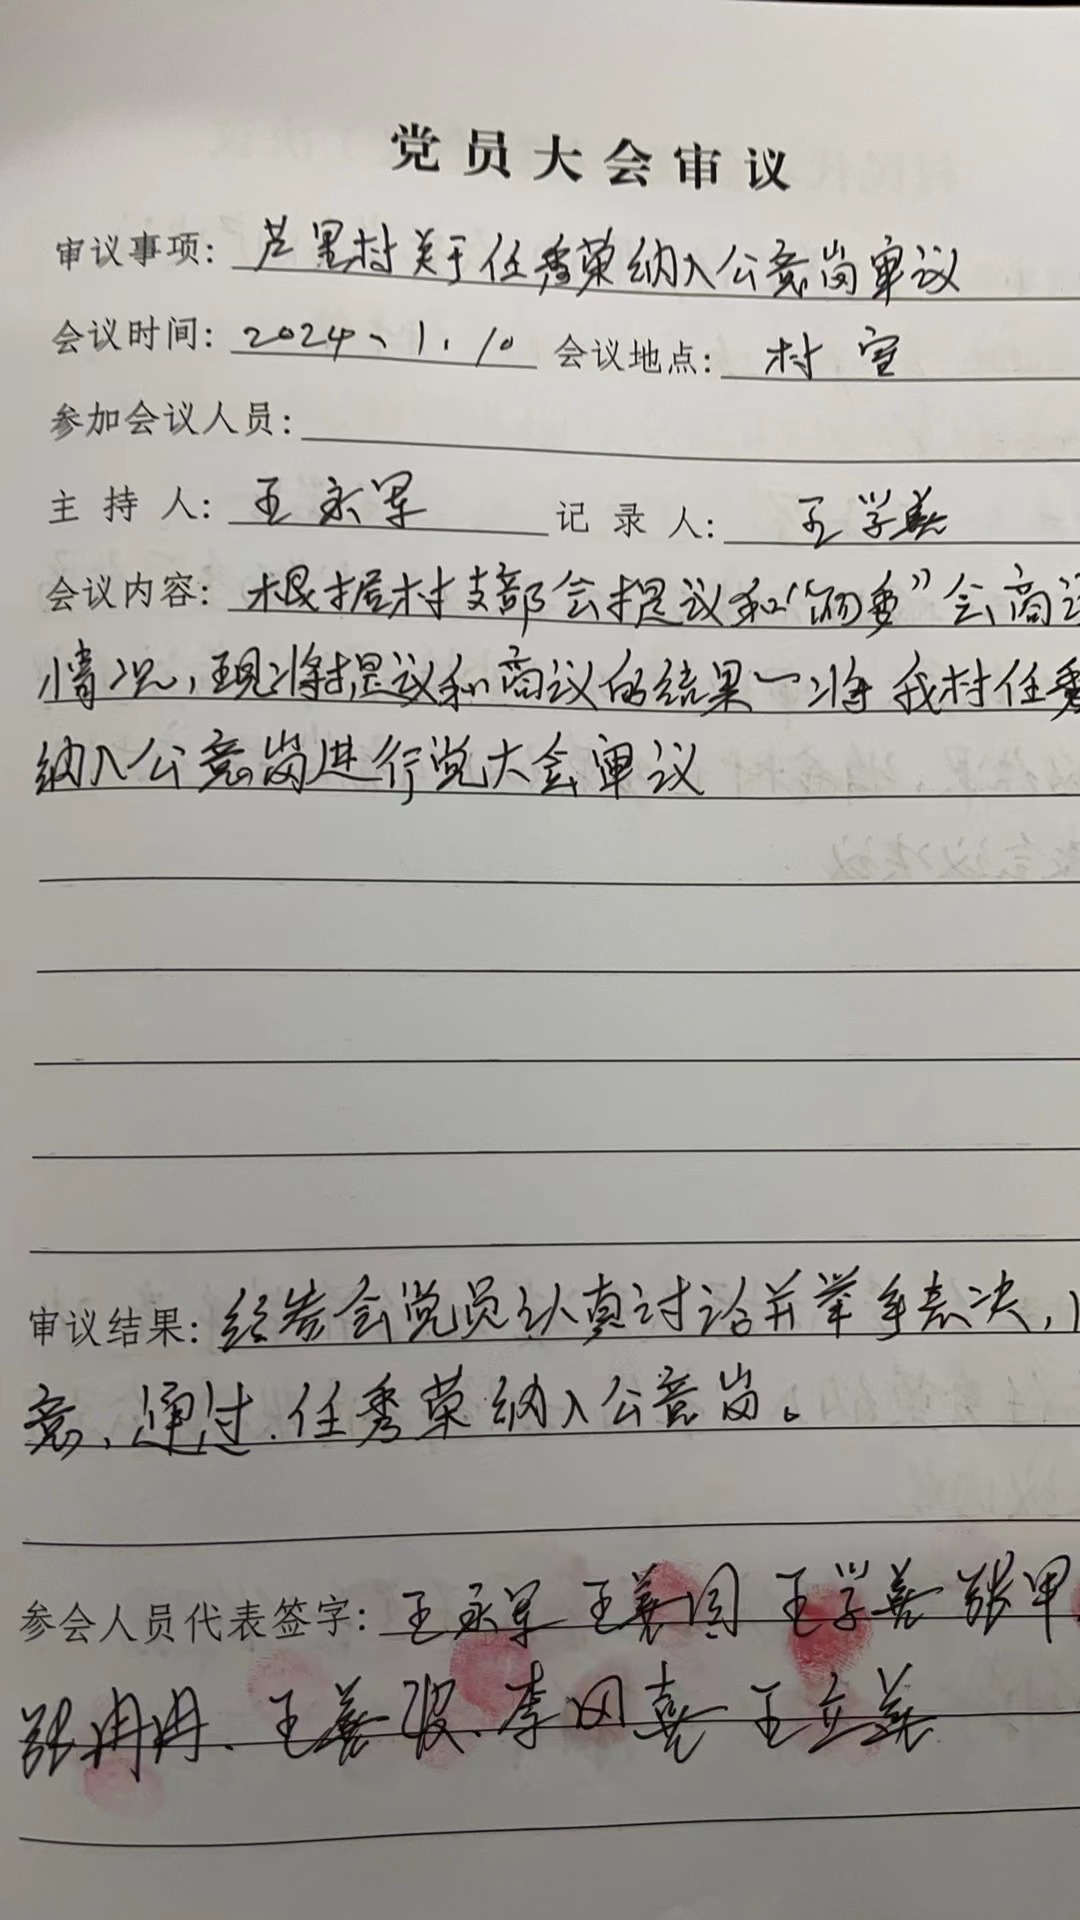 党员大会审议
审议事项: 芦里村关于任秀荣纳入公意岗审议
会议时间: 2024、1.10 会议地点: 村室
参加会议人员:
主持人: 王永军 记录人: 王学义
会议内容: 根据村支部会提议和“两委”会商议
情况,现将提议和商议的结果一将我村任秀
纳入公意岗进行党大会审议
审议结果: 经与会党员认真讨论并举手表决,
意,通过.任秀荣纳入公意岗。
参会人员代表签字: 王永军 王善国 王学善 张甲
张冉冉、王善 李 喜 王立